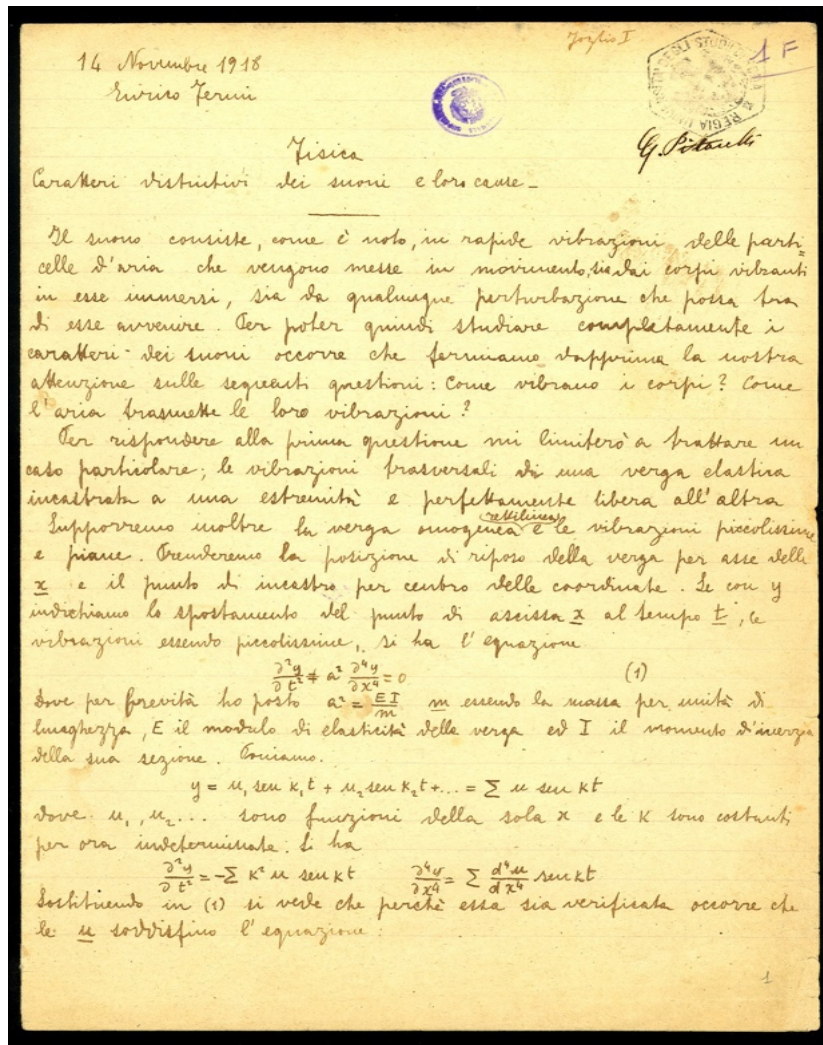 Foglio I
1 F
14 Novembre 1918
Enrico Fermi
G. Pittarelli
Fisica
Caratteri distintivi dei suoni e loro cause _
Il suono consiste, come è noto, in rapide vibrazioni delle parti=
celle d'aria che vengono messe in movimento, sia dai corpi vibranti
in esse immersi, sia da qualunque perturbazione che possa tra
di esse avvenire. Per poter quindi studiare completamente i
caratteri dei suoni occorre che fermiamo dapprima la nostra
attenzione sulle seguenti questioni: Come vibrano i corpi? Come
l'aria trasmette le loro vibrazioni?
Per rispondere alla prima questione mi limiterò a trattare un
caso particolare; le vibrazioni trasversali di una verga elastica
incastrata a una estremità e perfettamente libera all'altra
Supporremo inoltre la verga omogenea rettilinea e le vibrazioni piccolissime
e piane. Prenderemo la posizione di riposo della verga per asse delle
x e il punto di incastro per centro delle coordinate. Se con y
indichiamo lo spostamento del punto di ascissa x al tempo t, le
vibrazioni essendo piccolissime, si ha l'equazione
∂²y/∂t² + a² ∂⁴y/∂x⁴ = 0 (1)
dove per brevità ho posto a² = EI/m m essendo la massa per unità di
lunghezza, E il modulo di elasticità della verga ed I il momento d'inerzia
della sua sezione. Poniamo.
y = u₁ sen k₁t + u₂ sen k₂t + ... = Σ u sen kt
dove u₁, u₂ ... sono funzioni della sola x e le k sono costanti
per ora indeterminate. Si ha
∂²y/∂t² = -Σ k² u sen kt ∂⁴y/∂x⁴ = Σ d⁴u/dx⁴ sen kt
Sostituendo in (1) si vede che perchè essa sia verificata occorre che
le u soddisfino l'equazione:
1